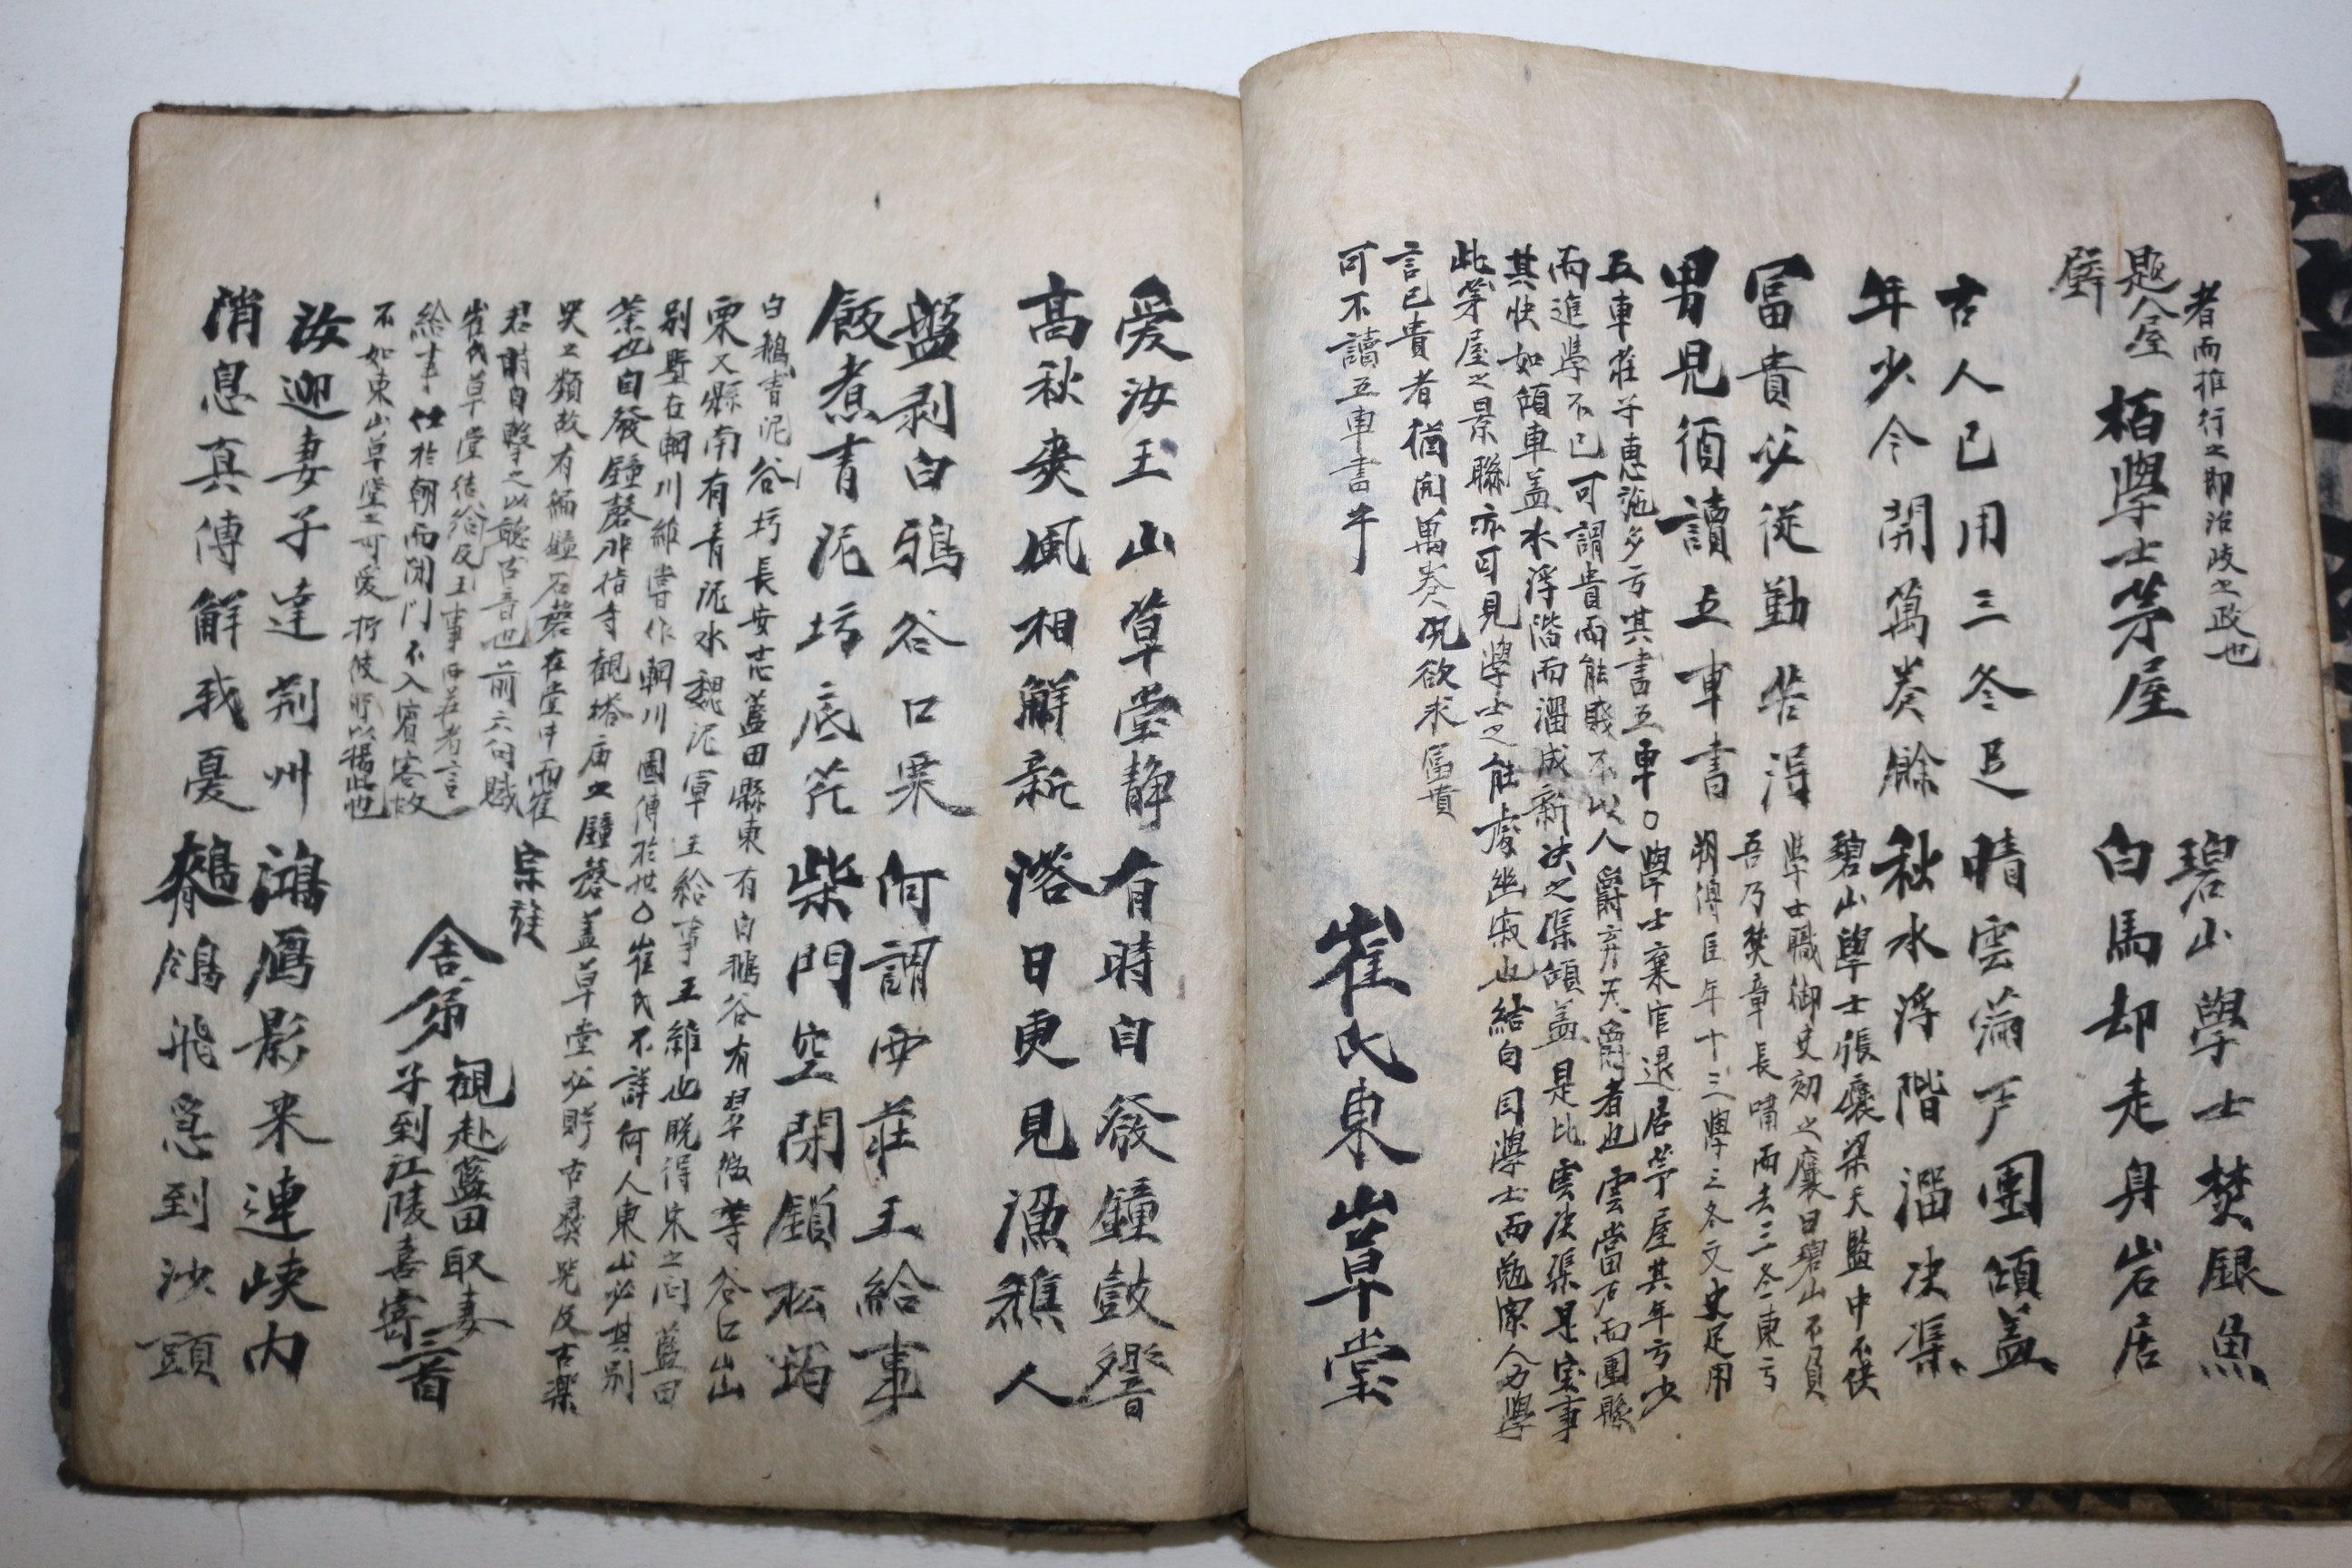 者而推行之即治陂之政也
題人屋
壁
栢學士茅屋
碧山學士焚銀魚
白馬却走身岩居
古人已用三冬足 晴雲滿戶團傾盖
年少今開萬卷餘 秋水浮階溜決渠
富貴必從勤苦得
男兒須讀五車書
碧山學士張褒梁天監中不供
學士職御史劾之褒曰碧山不負
吾乃焚章長嘯而去三冬東方
朔傳臣年十三學三冬文史足用
五車莊子惠施多方其書五車○學士棄官退居茅屋其年方少
而進學不已可謂貴而能賤不以人爵弃天爵者也雲當戶而團縣
其快如傾車盖水浮階而溜成新決之渠傾盖是比雲決渠是宲事
此等屋之景聯亦可見學士之能處幽寂也結句因學士而勉家人為學
言已貴者猶開萬卷況欲求富貴
可不讀五車書乎
崔氏東山草堂
愛汝玉山草堂靜 有時自發鐘鼓響
高秋爽風相鮮新 落日更見漁樵人
盤剥白鴉谷口栗 何謂西莊王給事
飯煮青泥坊底芹 柴門空閉鎖松筠
白鵶青泥谷坊長安志藍田縣東有白鵶谷有翠微等谷口出
栗又縣南有青泥水魏泥軍王給事王維也脫得宋之問藍田
別墅在輞川維嘗作輞川圖傳於世○崔氏不詳何人東山必其別
業也自發鐘磬非指寺觀塔庙之鐘磬盖草堂必貯古彝器及古樂
哭之類故有編鐘石磬在堂中而崔
君時自擊之以聽古音也前六句賦
崔氏草堂結給及王事西莊者言
給事仕於朝而閉門不入賓客故
不如東山草堂之可愛 所以揚此也
宗族
舍弟
觀赴藍田取妻
子到江陵喜寄三首
汝迎妻子達荆州 鴻鴈影来連峽内
消息真傳解我憂 鶺鴒飛急到沙頭